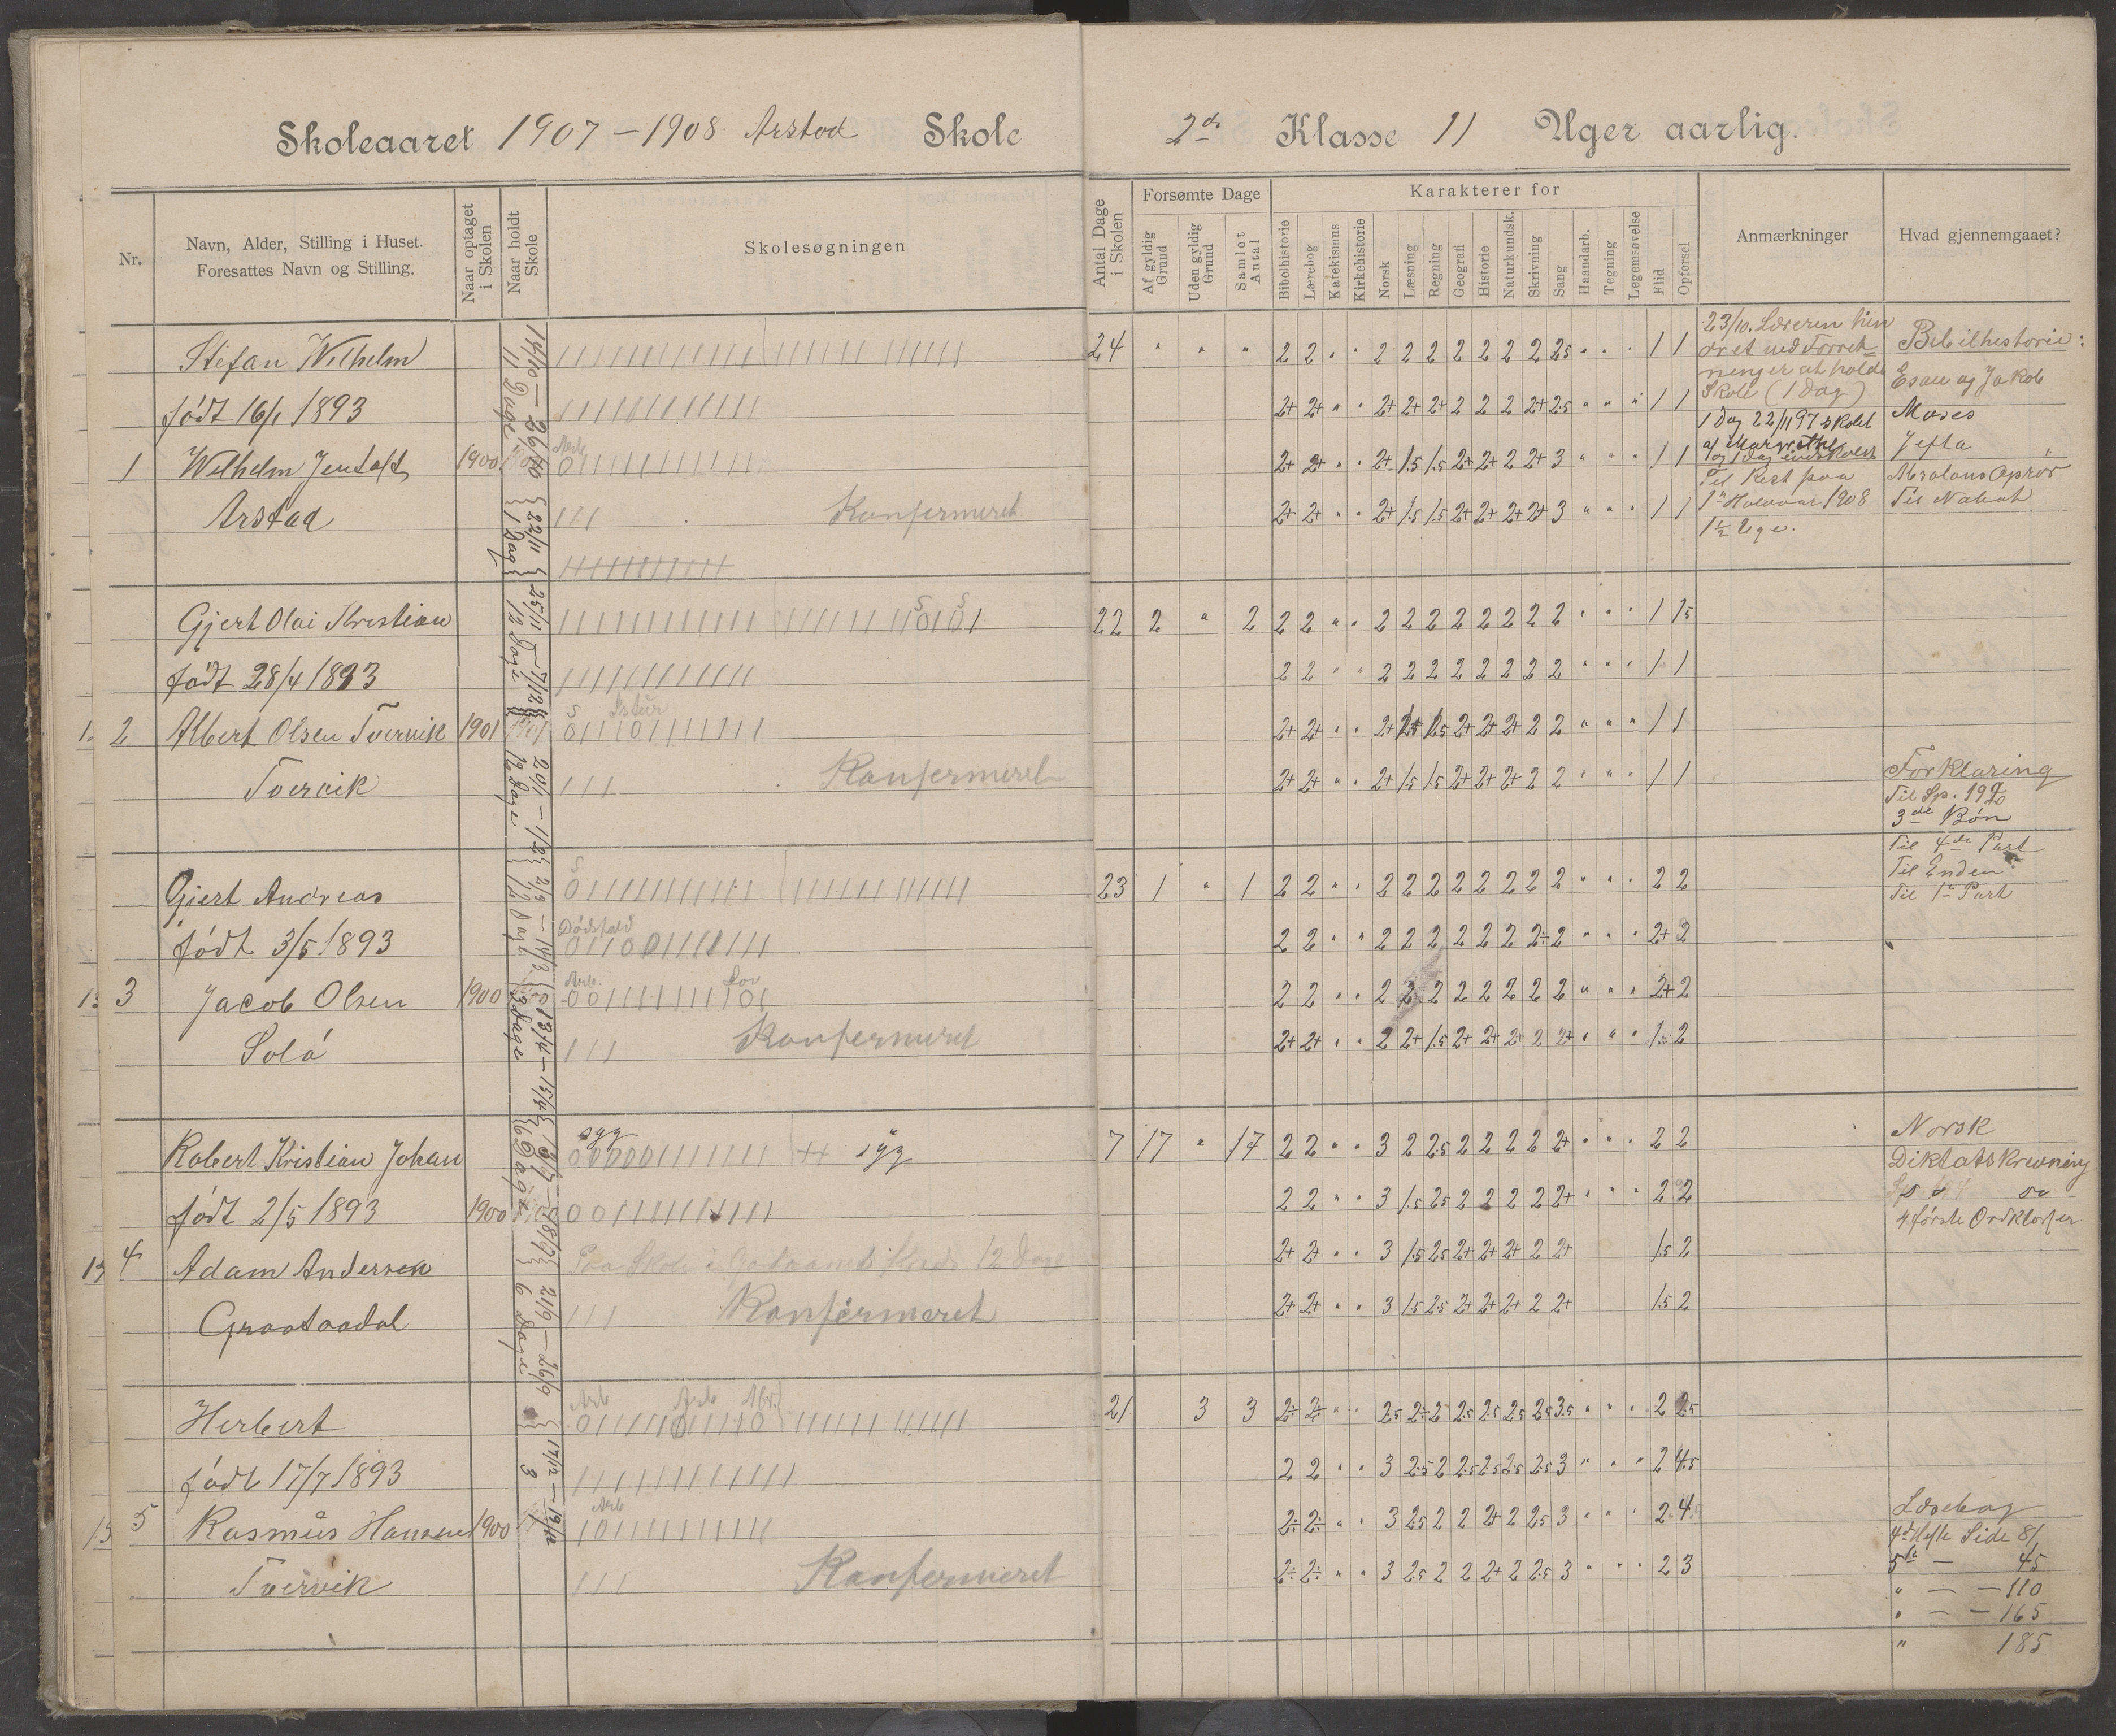 Skoleaaret 1907-1908 Arstad Skole
2den Klasse 11 Uger aarlig.
Nr.
Navn, Alder, Stilling i Huset.
Foresattes Navn og Stilling.
Naar optaget
i Skolen
Naar holdt
Skole
Skolesøgningen
Antal Dage
i Skolen
Forsømte Dage
Af gyldig
Grund
Uden gyldig
Grund
Samlet
Antal
Karakterer for
Bibelhistorie
Lærebog
Katekismus
Kirkehistorie
Norsk
Læsning
Regning
Geografi
Historie
Naturkundsk.
Skrivning
Sang
Haandarb.
Tegning
Legemsøvelse
Flid
Opførsel
Anmærkninger
Hvad gjennemgaaet?
14/10 - 26/10 { 22/11 { 25/11 - 7/12 { 20/1 - 1/2 { 2/3 - 14/3
11 Dage 1 Dag 12 Dage 12 Dage 12 Dage
21/9 - 26/9 { 17/12 - 19/12
6 Dage 3
Stefan Wilhelm
24 " " " 2 2 " " 2 2 2 2 2 2 2 2.5 " " " 1 1
født 16/1 1893
2+ 2+ " " 2+ 2+ 2+ 2 2 2 2+ 2.5 " " " 1 1
1 Wilhelm Jentoft 1900
Arb
2+ 2+ " " 2+ 1.5 1.5 2+ 2+ 2 2+ 3 " " " 1 1
Arstad
Konfermeret
2+ 2+ " " 2+ 1.5 1.5 2+ 2+ 2+ 2+ 3 " " " 1 1
23/10. Læreren hin
dret ved Forret-
ninger at holde
Skole (1 Dag)
Til Rest paa
1ste Halvaar 1908
1½ Uge.
Bibelhistorie:
Esau og Jakob
Moses
Jefta
Absalons Oprør
Til Nabot
Gjert Olai Kristian
22 2 " 2 2 2 " " 2 2 2 2 2 2 2 2 " " " 1 1.5
født 28/4 1893
2 2 " " 2 2 2 2 2 2 2 2 " " " 1 1
2 Albert Olsen Tvervik 1901
2+ 2+ " " 2+ 1.5 1.5 2+ 2+ 2+ 2 2 " " " 1 1
Tvervik
Konfermeret
2+ 2+ " " 2+ 1.5 1.5 2+ 2+ 2+ 2 2 " " " 1 1
Forklaring
3de Bøn
Til 4de Part
Til Enden
Til 1ste Part
Gjert Andreas
23 1 " 1 2 2 " " 2 2 2 2 2 2 2 2 " " " 2 2
født 3/5 1893
Dødsfald
2 2 " " 2 2 2 2 2 2 2÷ 2 " " " 2+ 2
3 Jacob Olsen 1900
Arb. Lov
2 2 " " 2 2 2 2 2 2 2 2 " " " 2+ 2
Solø
Konfermeret
2+ 2+ " " 2 2+ 1.5 2+ 2+ 2+ 2 2+ " " " 1.5 2
Robert Kristian Johan
syg syg
7 17 " 17 2 2 " " 3 2 2.5 2 2 2 2 2+ " " " 2 2
født 2/5 1893 1900
2 2 " " 3 1.5 2.5 2 2 2 2 2+ " " " 2 2
4 Adam Andersen
2+ 2+ " " 3 1.5 2.5 2+ 2+ 2+ 2 2+ 1.5 2
Graataadal
Konfermeret
2+ 2+ " " 3 1.5 2.5 2+ 2+ 2+ 2 2+ 1.5 2
Norsk
Diktatskrivning
4 første Ordklasser
Herbert
Arb Arb
21 3 3 2÷ 2÷ " " 2.5 2÷ 2 2.5 2.5 2.5 2.5 3.5 " " " 2 2.5
født 17/7 1893
2 2 " " 3 2.5 2 2.5 2.5 2.5 2.5 3 " " " 2 4.5
5 Rasmus Hansen 1900
Arb
2÷ 2÷ " " 3 2.5 2 2 2+ 2 2.5 3 " " " 2 4
Tvervik
Konfermeret
2÷ 2÷ " " 3 2.5 2 2 2+ 2 2.5 3 " " " 2 3
Læsebog
4de Hefte Side 81
5te — 45
" — — 110
" — — 165
" 185